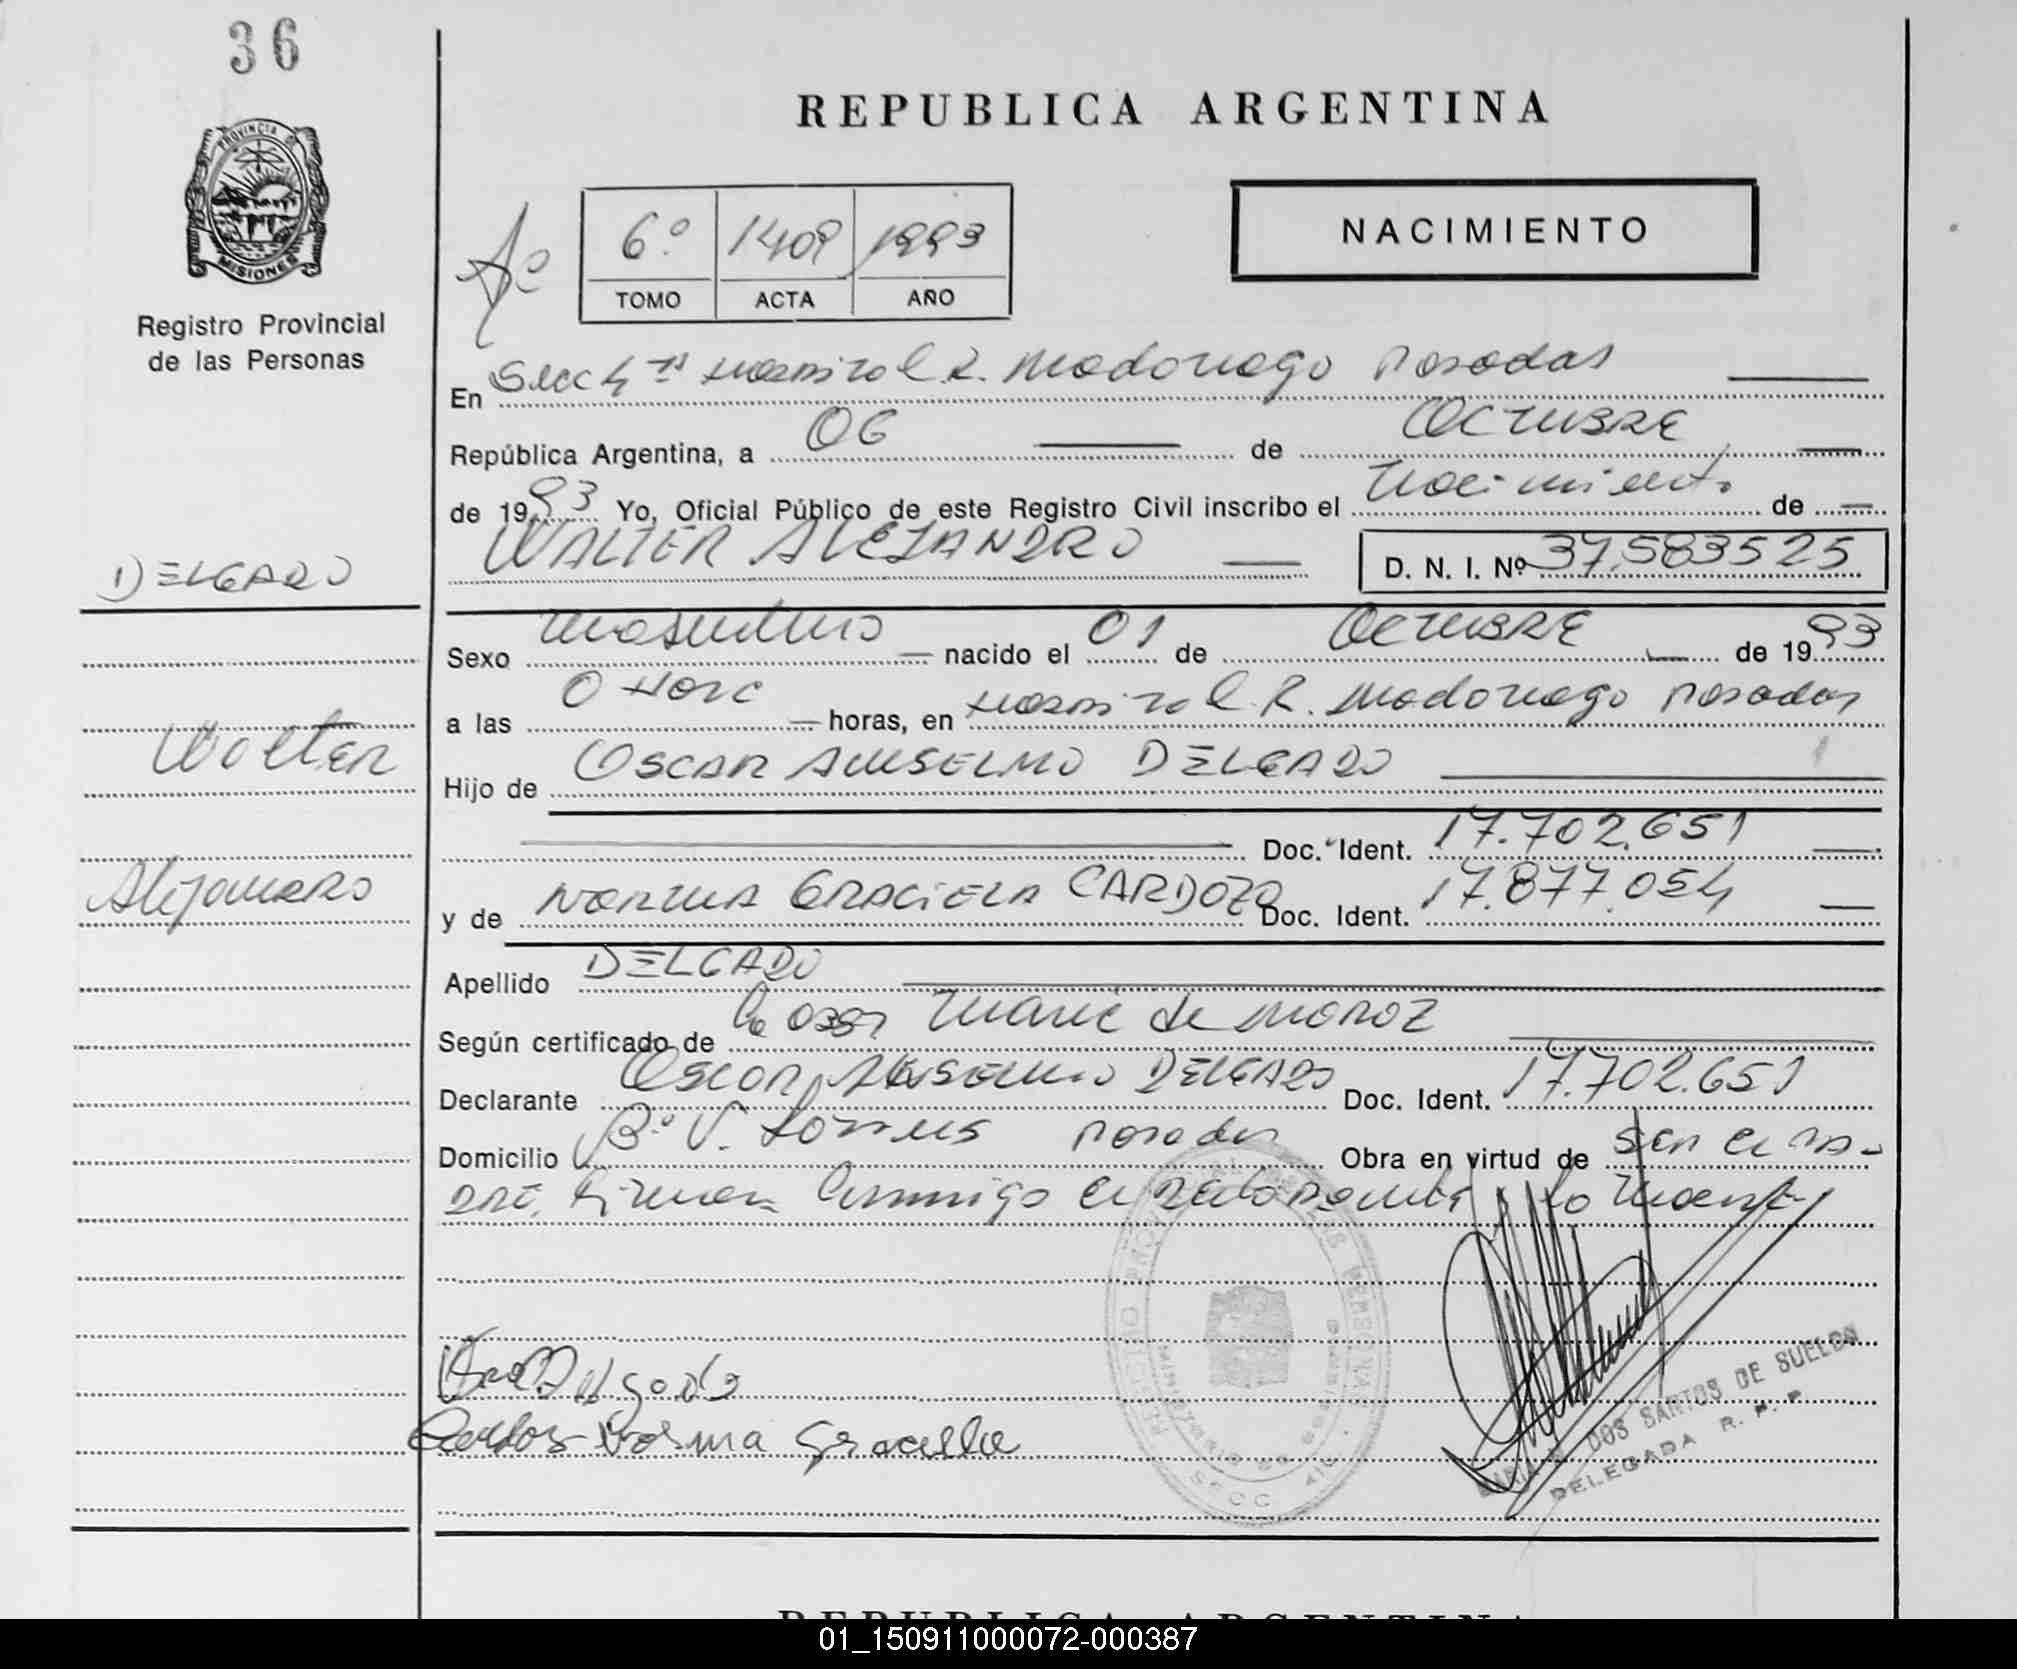 36
PROVINCIA DE
MISIONES
Registro Provincial
de las Personas
REPUBLICA ARGENTINA
6º 1409 1993
TOMO ACTA AÑO
NACIMIENTO
En Secc 4ª Hospital R. Madariaga Posadas
República Argentina, a 06 de OCTUBRE
de 1993 Yo, Oficial Público de este Registro Civil inscribo el Nacimiento de
DELGADO
WALTER ALEJANDRO
D. N. I. Nº 37.583525
Sexo masculino nacido el 01 de OCTUBRE de 1993
a las 0 horas, en Hospital R. Madariaga Posadas
Walter
Hijo de OSCAR ANSELMO DELGADO
Doc. Ident. 17.702.651
Alejandro
y de NORMA GRACIELA CARDOZO Doc. Ident. 17.877.054
Apellido DELGADO
Según certificado de María de MOROZ
Declarante OSCAR ANSELMO DELGADO Doc. Ident. 17.702.651
Domicilio Bº V. Posadas Obra en virtud de ser el pa-
dre, Firman conmigo el declarante y la madre
Delgado
Cardozo Norma Graciela
DOS SANTOS DE SUELDO
DELEGADA R. P. P.
REPUBLICA ARGENTINA
01_150911000072-000387